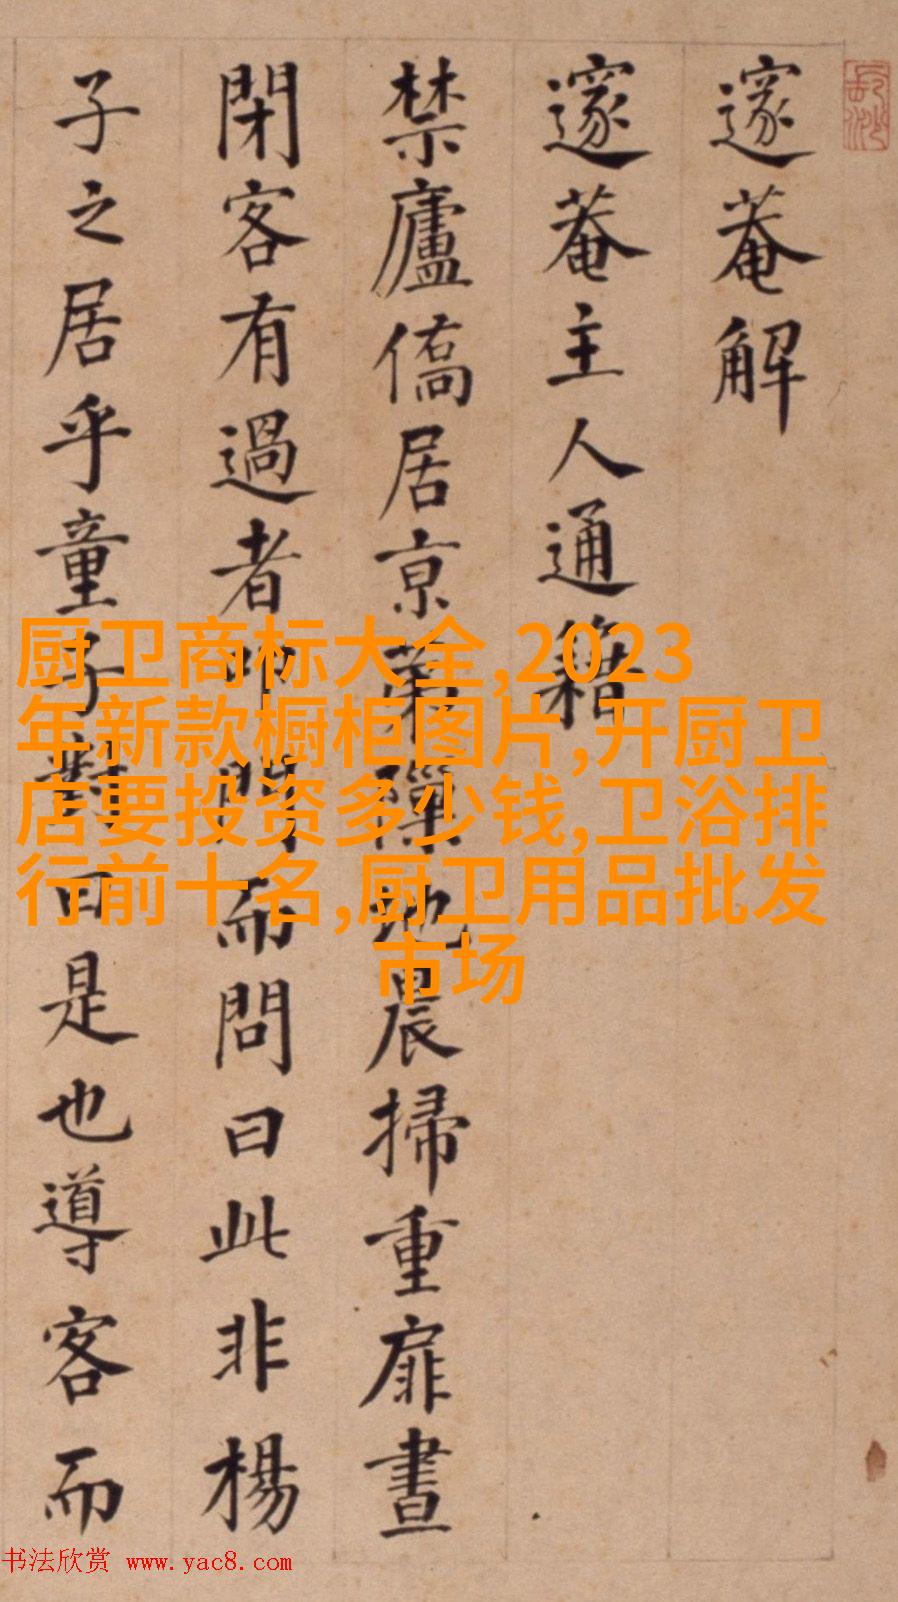 邃菴解
邃菴主人通籍
禁廬僑居京第隙地晨掃重扉晝
閉客有過者叩門而問曰此非楊
子之居乎童子對曰是也導客而
厨卫商标大全,2023
年新款橱柜图片,开厨卫
店要投资多少钱,卫浴排
行前十名,厨卫用品批发
市场
书法欣赏 www.yac8.com